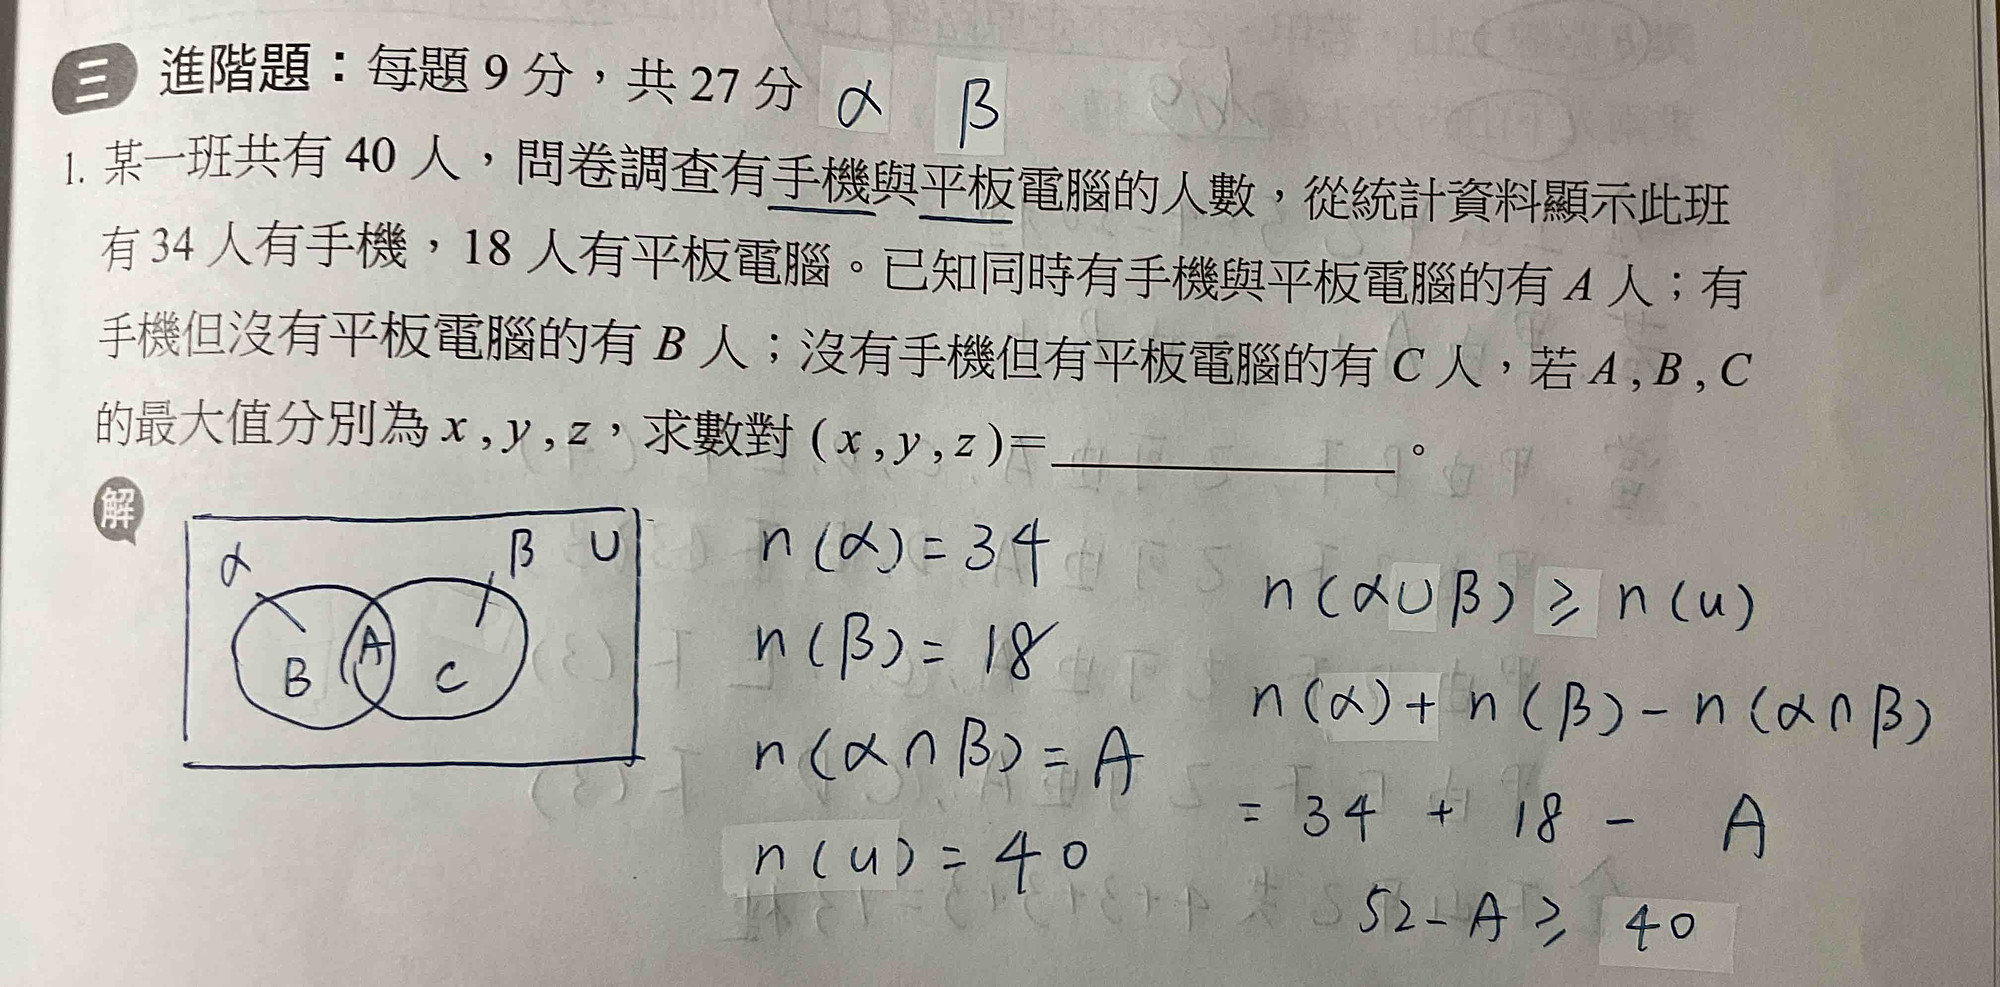 三 進階題：每題 9 分，共 27 分 α β
1. 某一班共有 40 人，問卷調查有手機與平板電腦的人數，從統計資料顯示此班
有 34 人有手機，18 人有平板電腦。已知同時有手機與平板電腦的有 A 人；有
手機但沒有平板電腦的有 B 人；沒有手機但有平板電腦的有 C 人，若 A , B , C
的最大值分別為 x , y , z，求數對 ( x , y , z )=＿＿＿＿＿＿。
解
α β U
B A C
n(α)=34
n(β)=18
n(α∩β)=A
n(u)=40
n(α∪β)≥n(u)
n(α)+n(β)-n(α∩β)
=34+18-A
52-A≥40